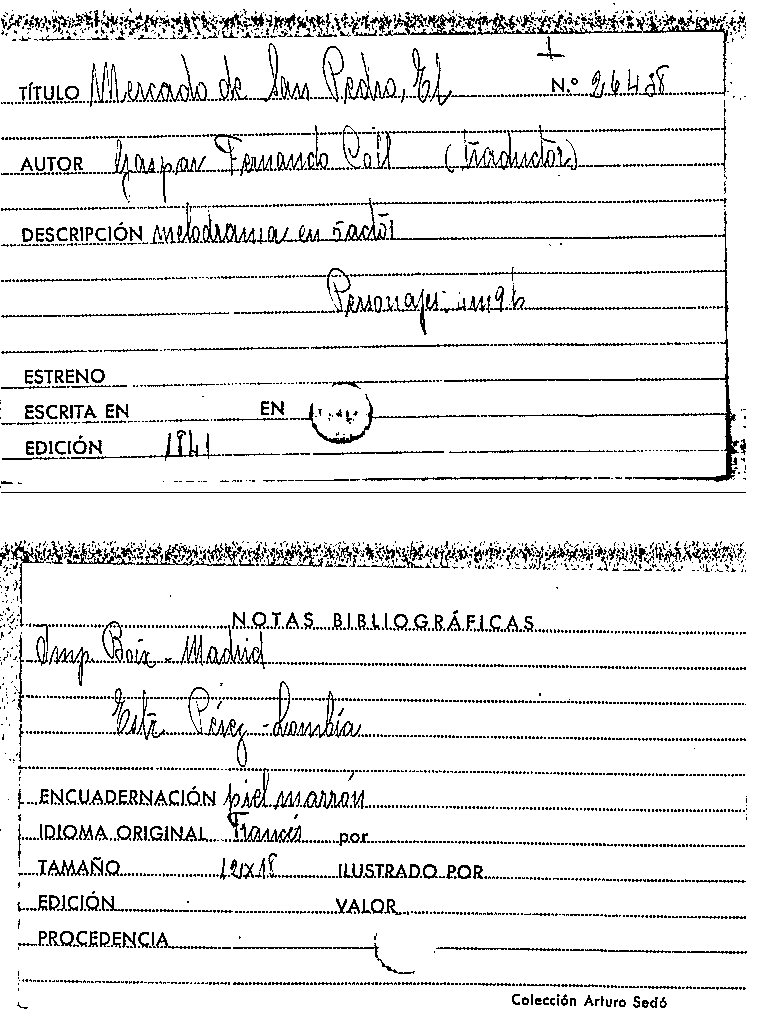 TÍTULO Mercado de San Pedro, El N.º 26438
AUTOR Gaspar Fernando Coll (traductor)
DESCRIPCIÓN melodrama en 5 actos
Personajes
ESTRENO
ESCRITA EN EN
EDICIÓN 1841
NOTAS BIBLIOGRÁFICAS
Imp. Boix - Madrid
Estr. Pérez - Lombía
ENCUADERNACIÓN piel marrón
IDIOMA ORIGINAL Francés por
TAMAÑO 12x18 ILUSTRADO POR
EDICIÓN VALOR
PROCEDENCIA
Colección Arturo Sedó